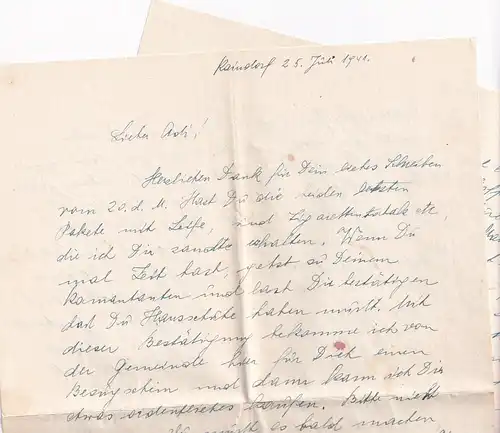 Raindorf 25. Juli 1941.
Lieber Adi!
Herzlichen Dank für Dein liebes Schreiben
vom 20. d. M. Hast Du die beiden letzten
Pakete mit Seife, und Zigarettentabak etc,
die ich Dir sandte erhalten. Wenn Du
mal Zeit hast, gehst zu Deinem
Komantanten und last Dir bestätigen
dat Du Hausschuhe haben mußt. Mit
dieser Bestätigung bekomme ich von
der Gemeinde hier für Dich einen
Bezugschein und dann kann ich Dir
etwas ordentliches kaufen. Bitte nicht
es bald machen